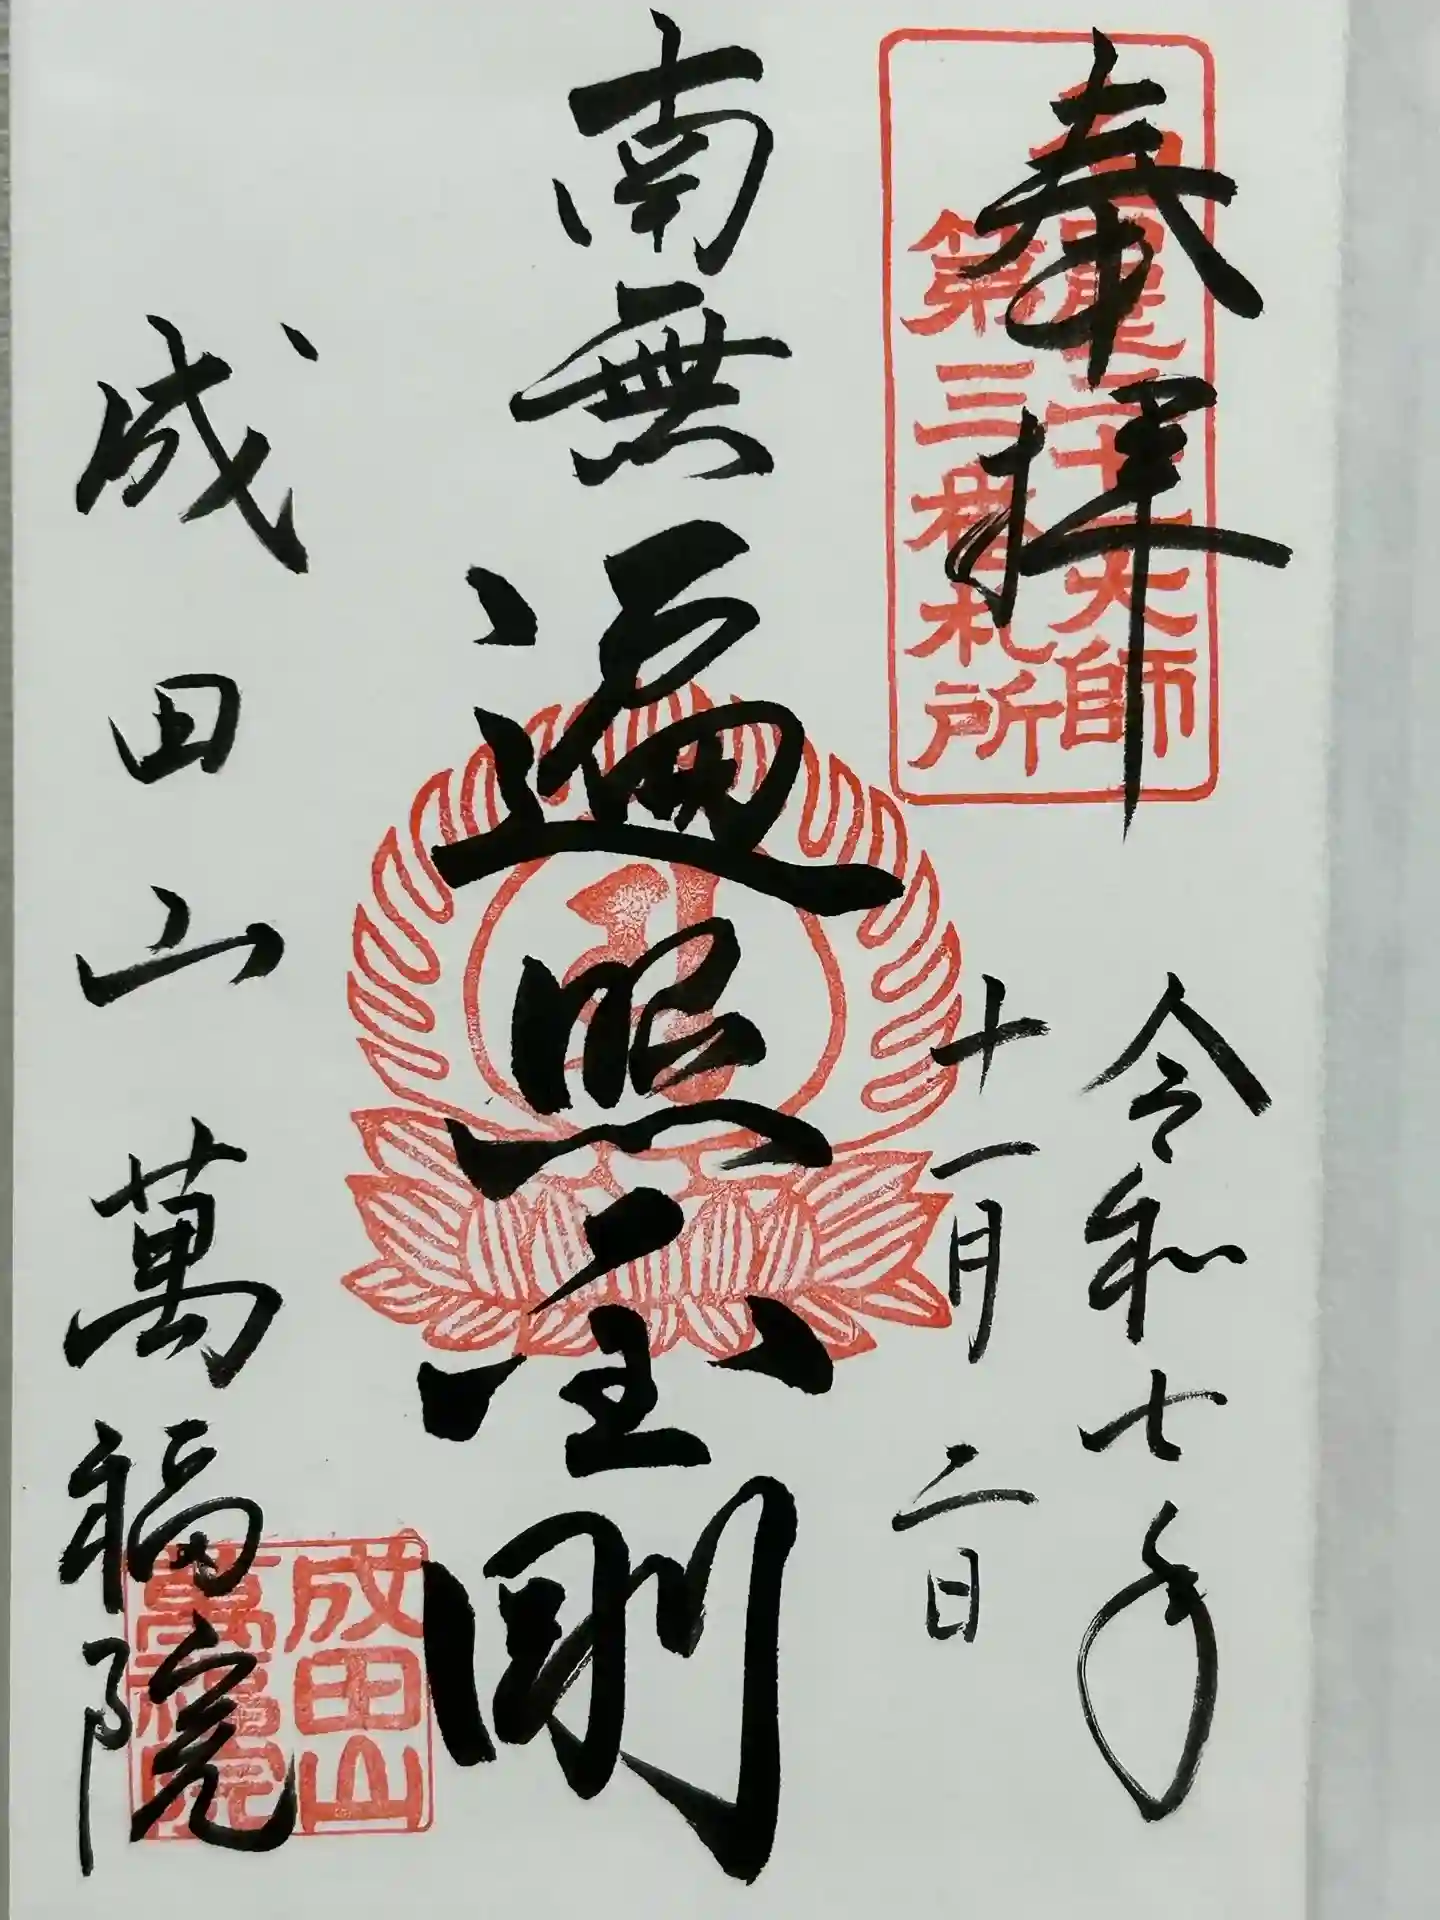 奉拝
大師
第三番札所
令和七年
十一月二日
南無遍照金剛
成田山萬福院
成田山
萬福院